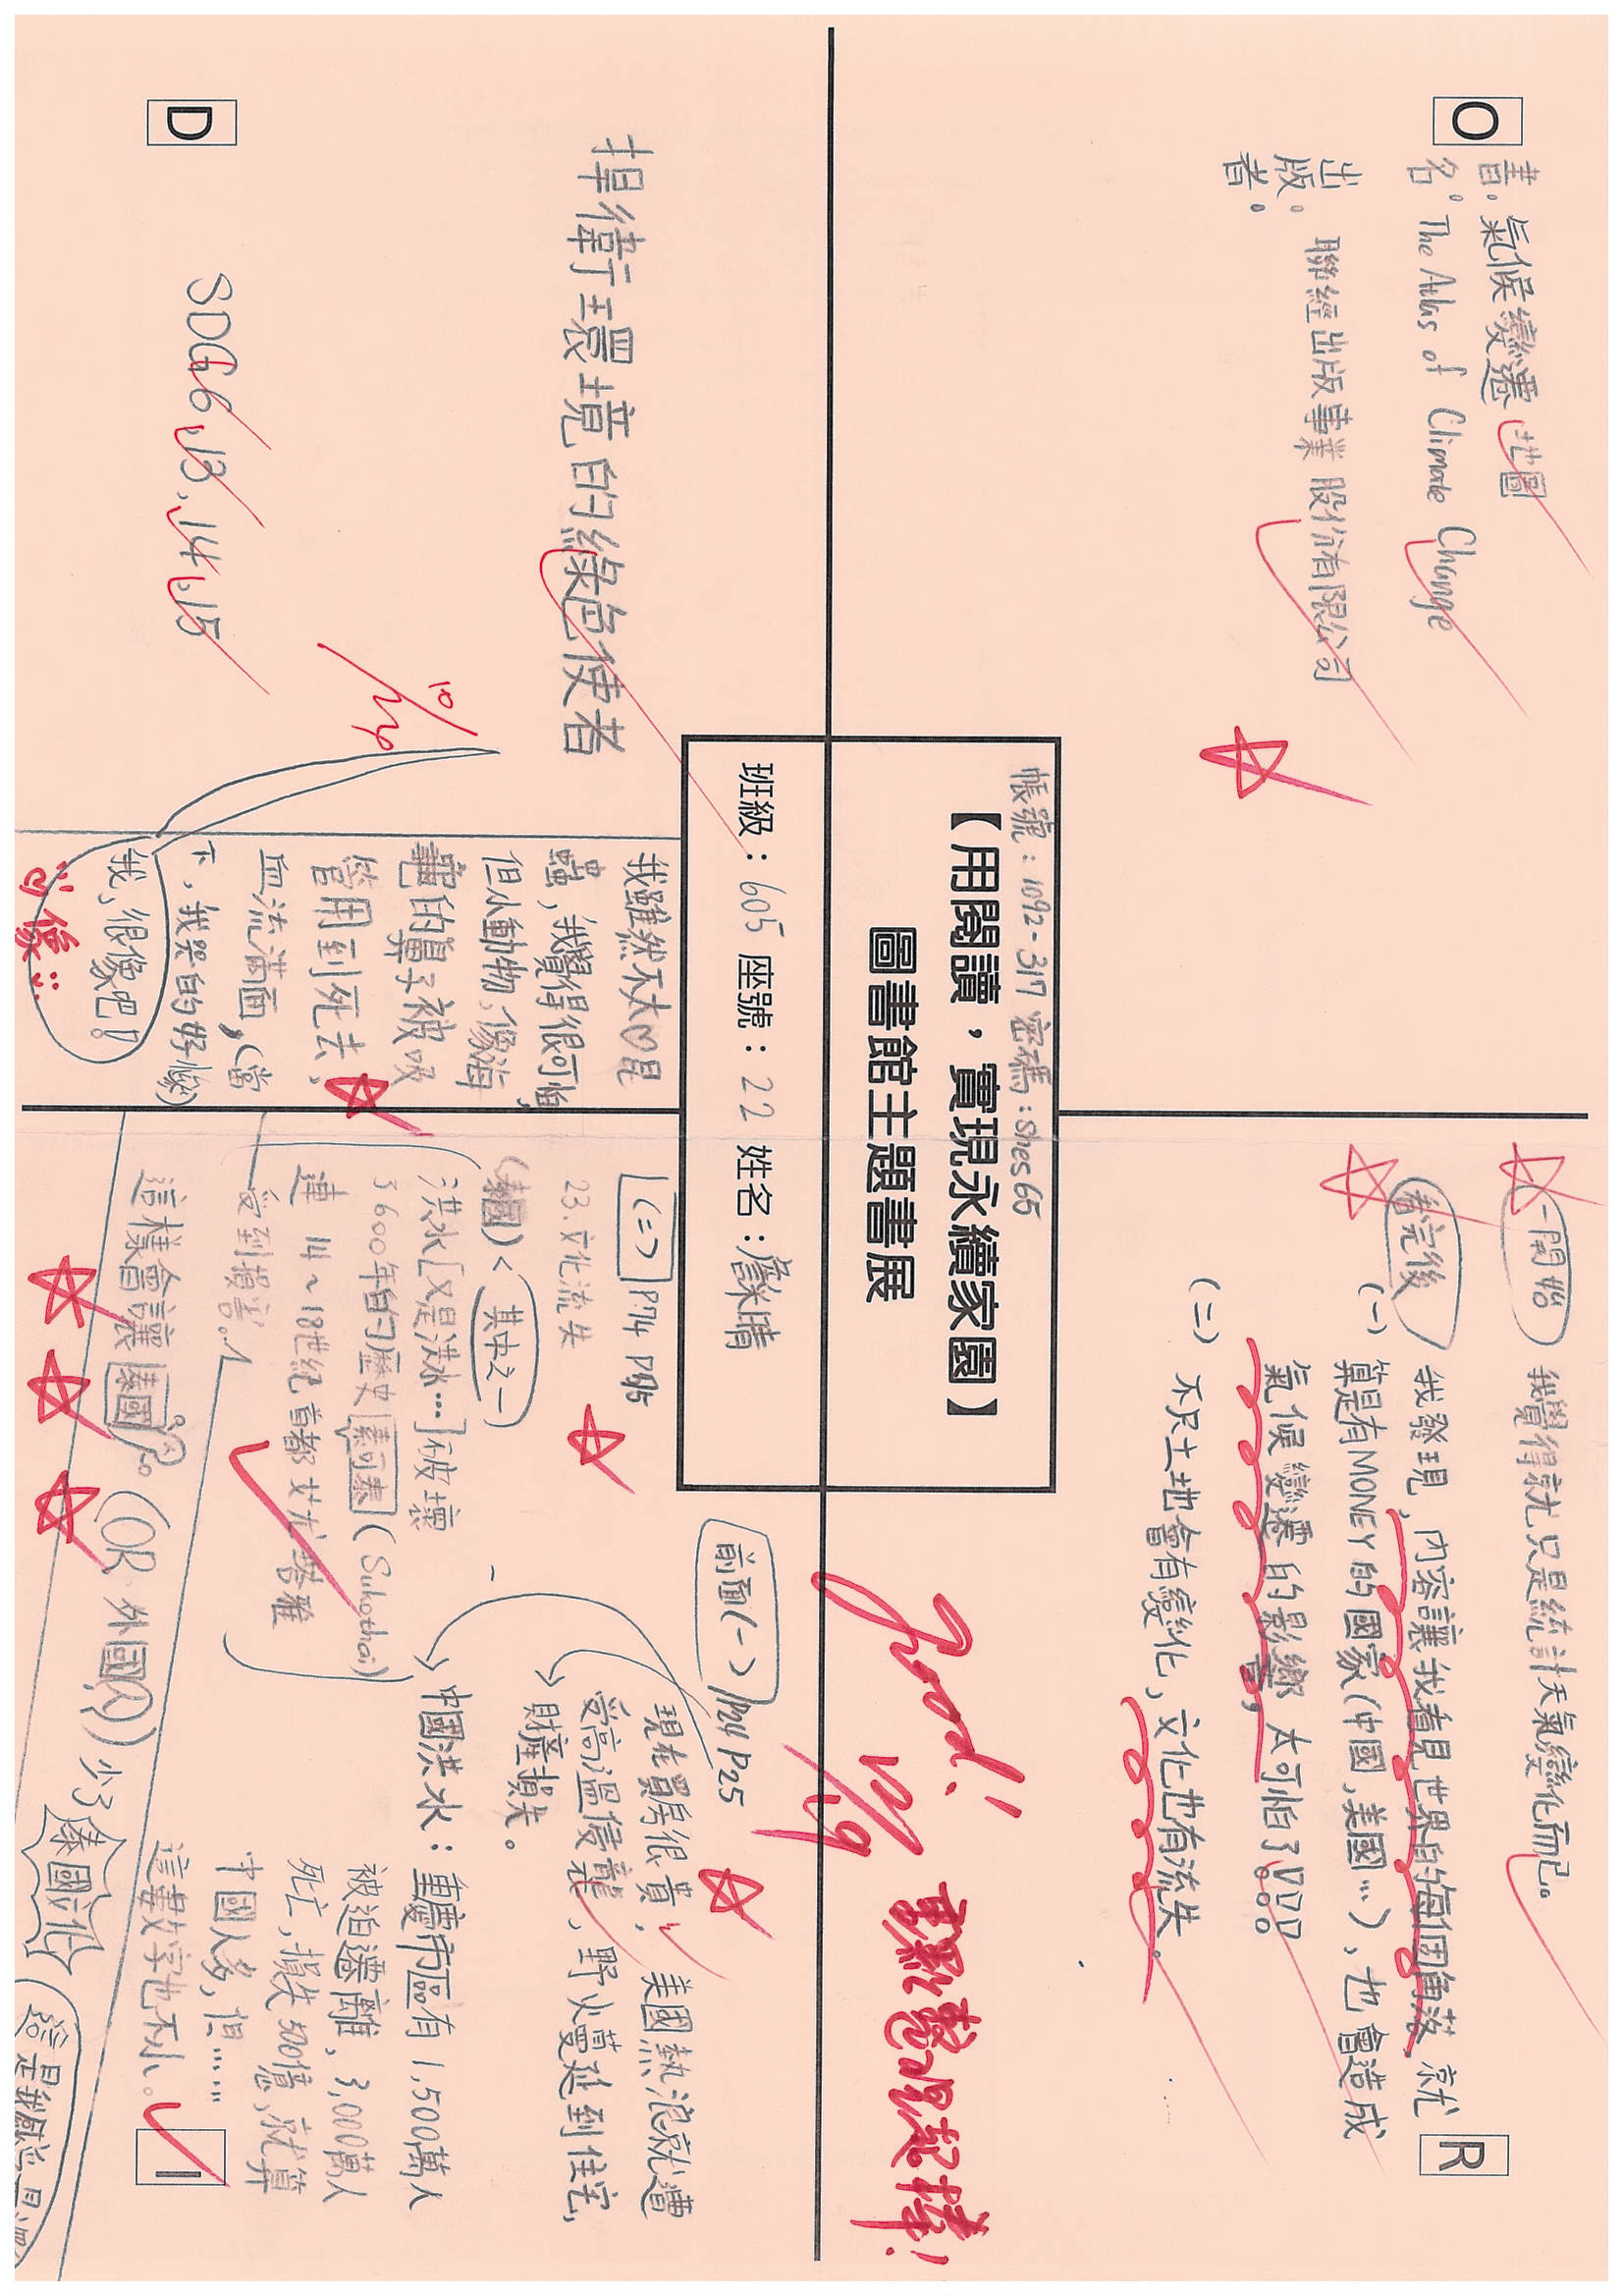 O
書名:氣候變遷地圖
The Atlas of Climate Change
出版者:聯經出版事業股份有限公司
R
一開始 我覺得就只是統計天氣變化而已。
看完後
(一) 我發現,內容讓我看見世界的每個角落,就
算是有MONEY的國家(中國,美國…),也會造成
氣候變遷的影響,太可怕了!!!
(二) 不只土地會有變化,文化也有流失。
Good!
12/9
帳號:1092-317 密碼:shes65
【用閱讀,實現永續家園】
圖書館主題書展
班級:605 座號:22 姓名:詹 晴
D
捍衛環境的綠色使者
SDG6,13,14,15
10/26
我雖然不太
蟲,我覺得很可怕,
但小動物,像海
龜的鼻子被吸
管用到死去,
血流滿面,(當
下,我哭的好慘)
我,很像吧!
好像
I
前面(一) P24 P25
現在買房很貴,美國熱浪就遭
受高溫侵襲,野火蔓延到住宅,
財產損失。
中國洪水:重慶市區有1,500萬人
被迫遷離,3,000萬人
死亡,損失500億,就算
中國人多,但……
這數字也不小。
(二) P74 P75
23.文化流失
(泰國)<其中之一
洪水[又是洪水…]破壞
3600年的歷史 素可泰(Sukothai)
連 14~18世紀首都艾尤塔雅
受到損害。
這樣會讓泰國
(OR外國人)少了
泰國